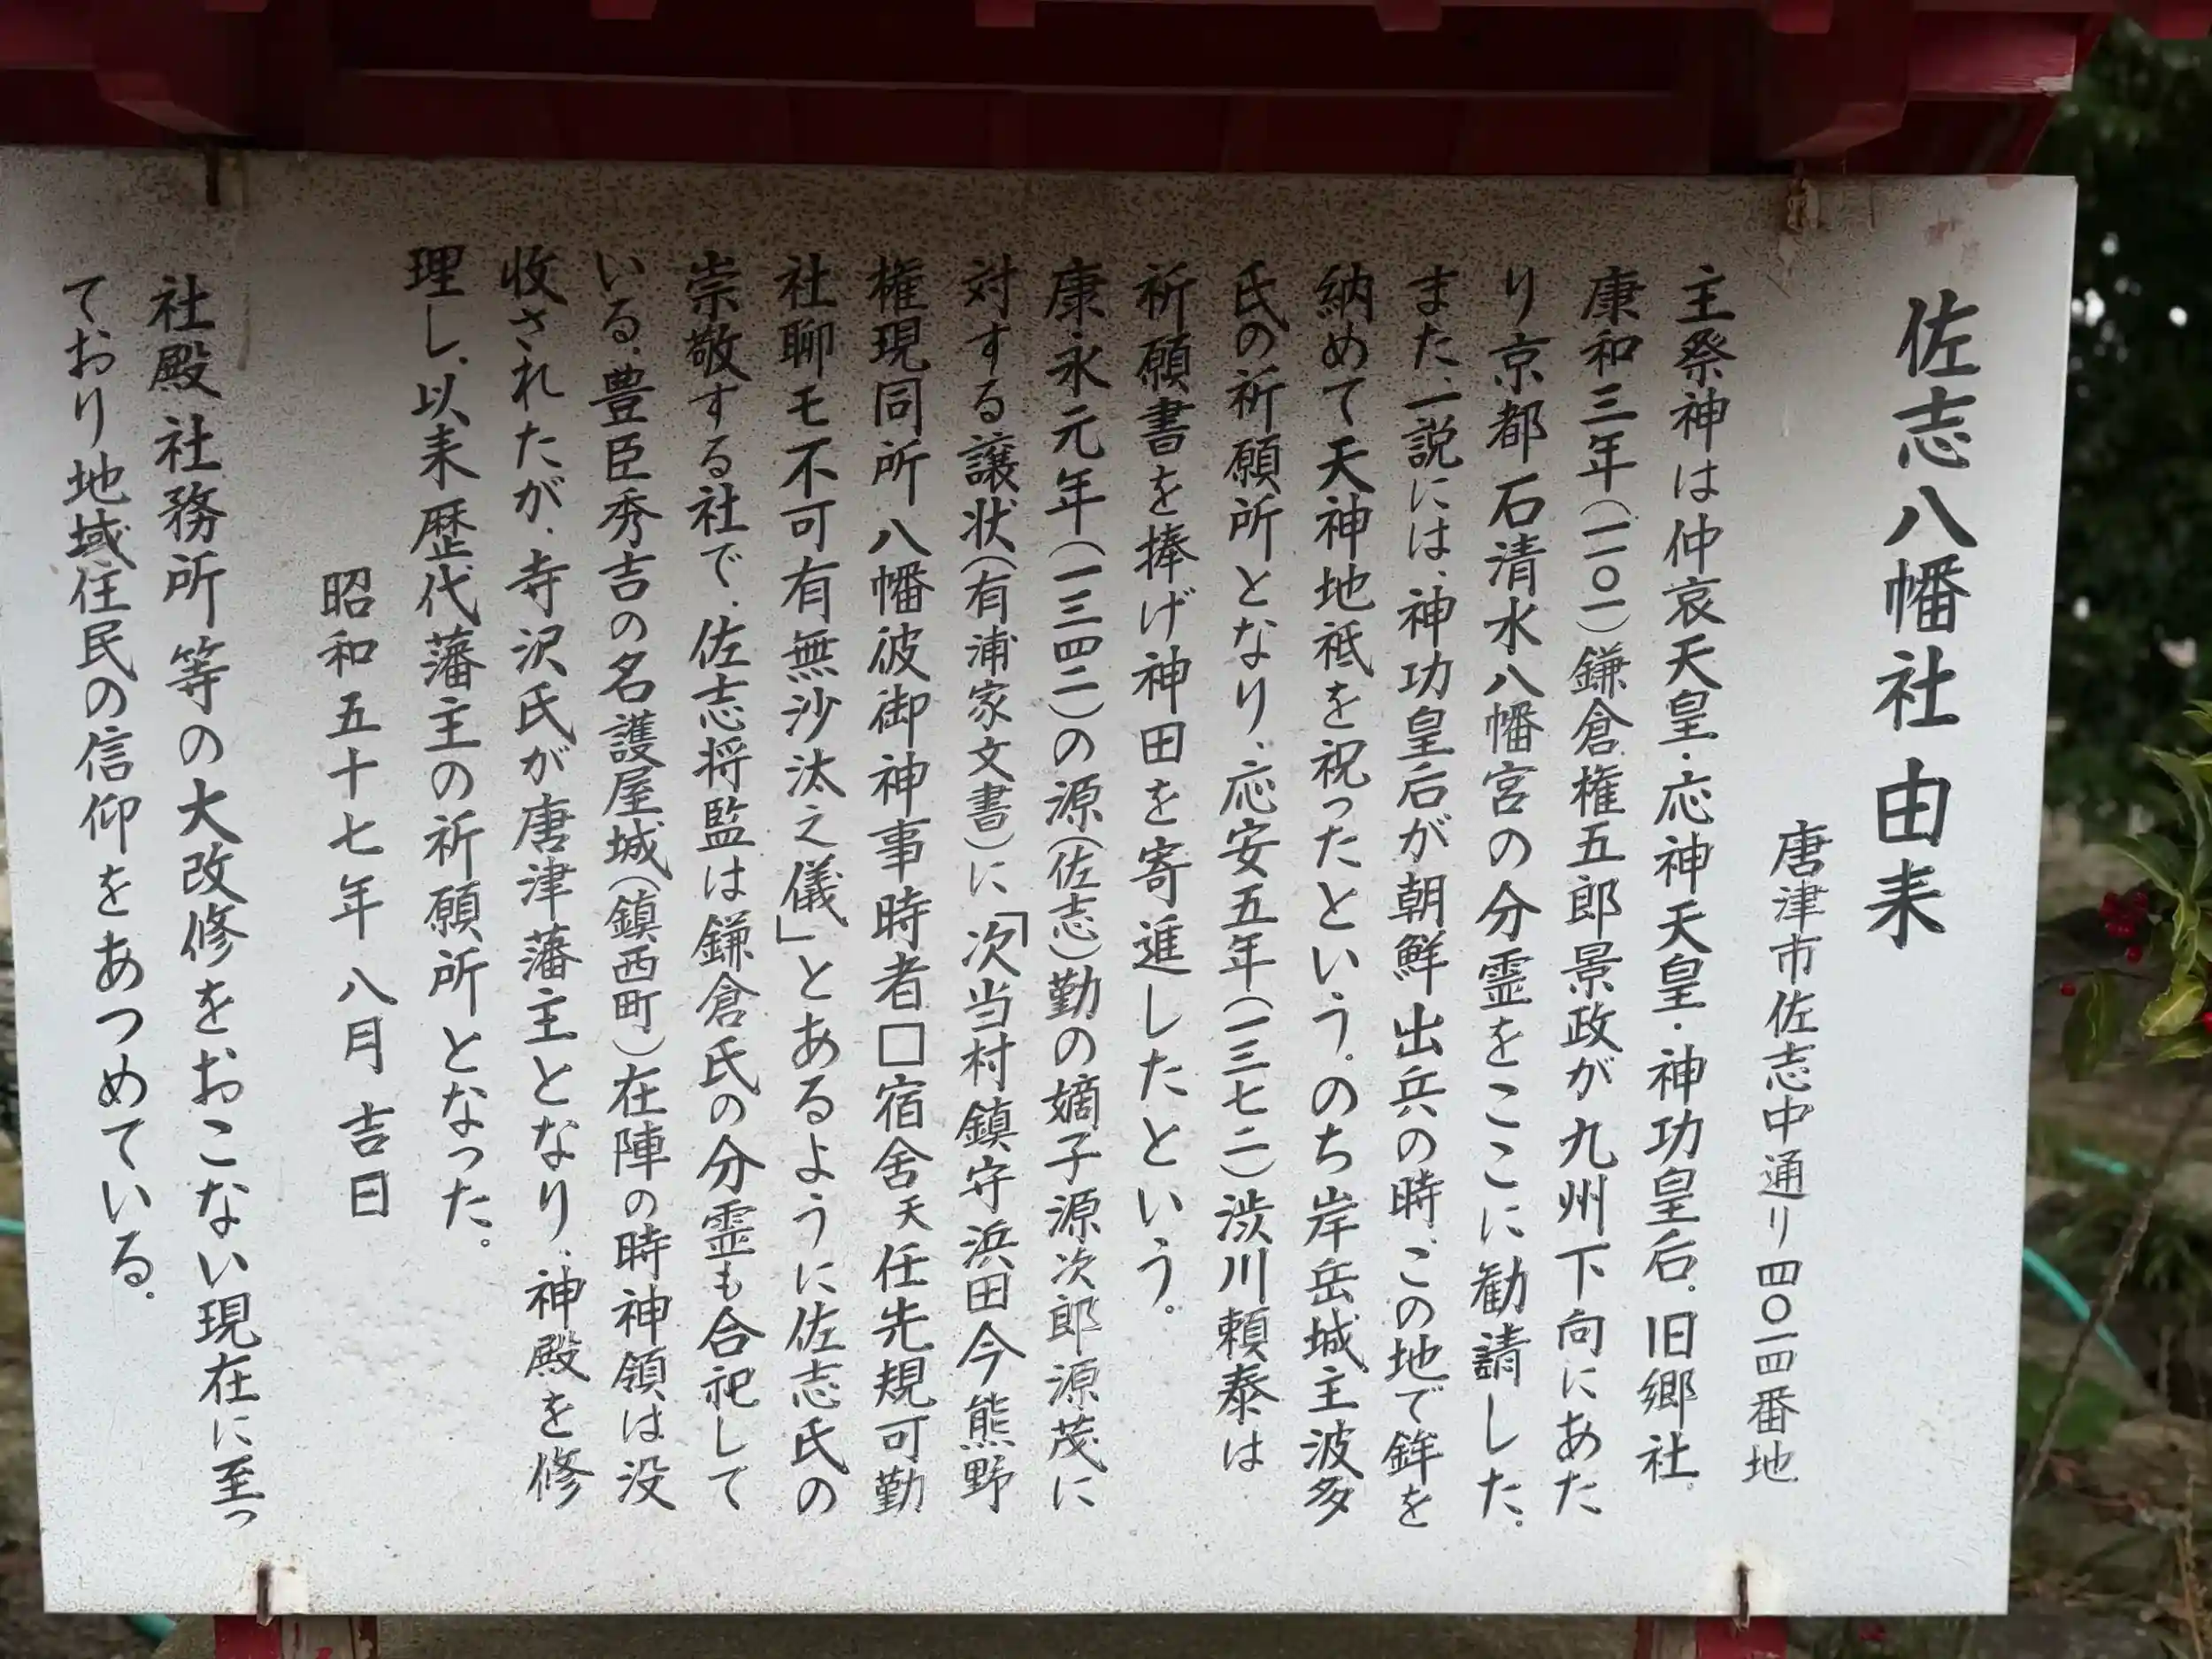 佐志八幡社由来
唐津市佐志中通り四〇一四番地
主祭神は仲哀天皇・応神天皇・神功皇后。旧郷社
康和三年(一一〇一)鎌倉権五郎景政が九州下向にあた
り京都石清水八幡宮の分霊をここに勧請した。
また、一説には、神功皇后が朝鮮出兵の時、この地で鉾を
納めて天神地祗を祝ったという。のち岸岳城主波多
氏の祈願所となり、応安五年(一三七二)渋川頼泰は
祈願書を捧げ神田を寄進したという。
康永元年(一三四二)の源(佐志)勤の嫡子源次郎源茂に
対する譲状(有浦家文書)に「次当村鎮守浜田今熊野
権現同所八幡彼御神事時者口宿舎天任先規可勤
社聊モ不可有無沙汰之儀」とあるように佐志氏の
崇敬する社で、佐志将監は鎌倉氏の分霊も合祀して
いる。豊臣秀吉の名護屋城(鎮西町)在陣の時神領は没
收されたが、寺沢氏が唐津藩主となり、神殿を修
理し、以来歴代藩主の祈願所となった。
昭和五十七年八月吉日
社殿社務所等の大改修をおこない現在に至っ
ており地域住民の信仰をあつめている。